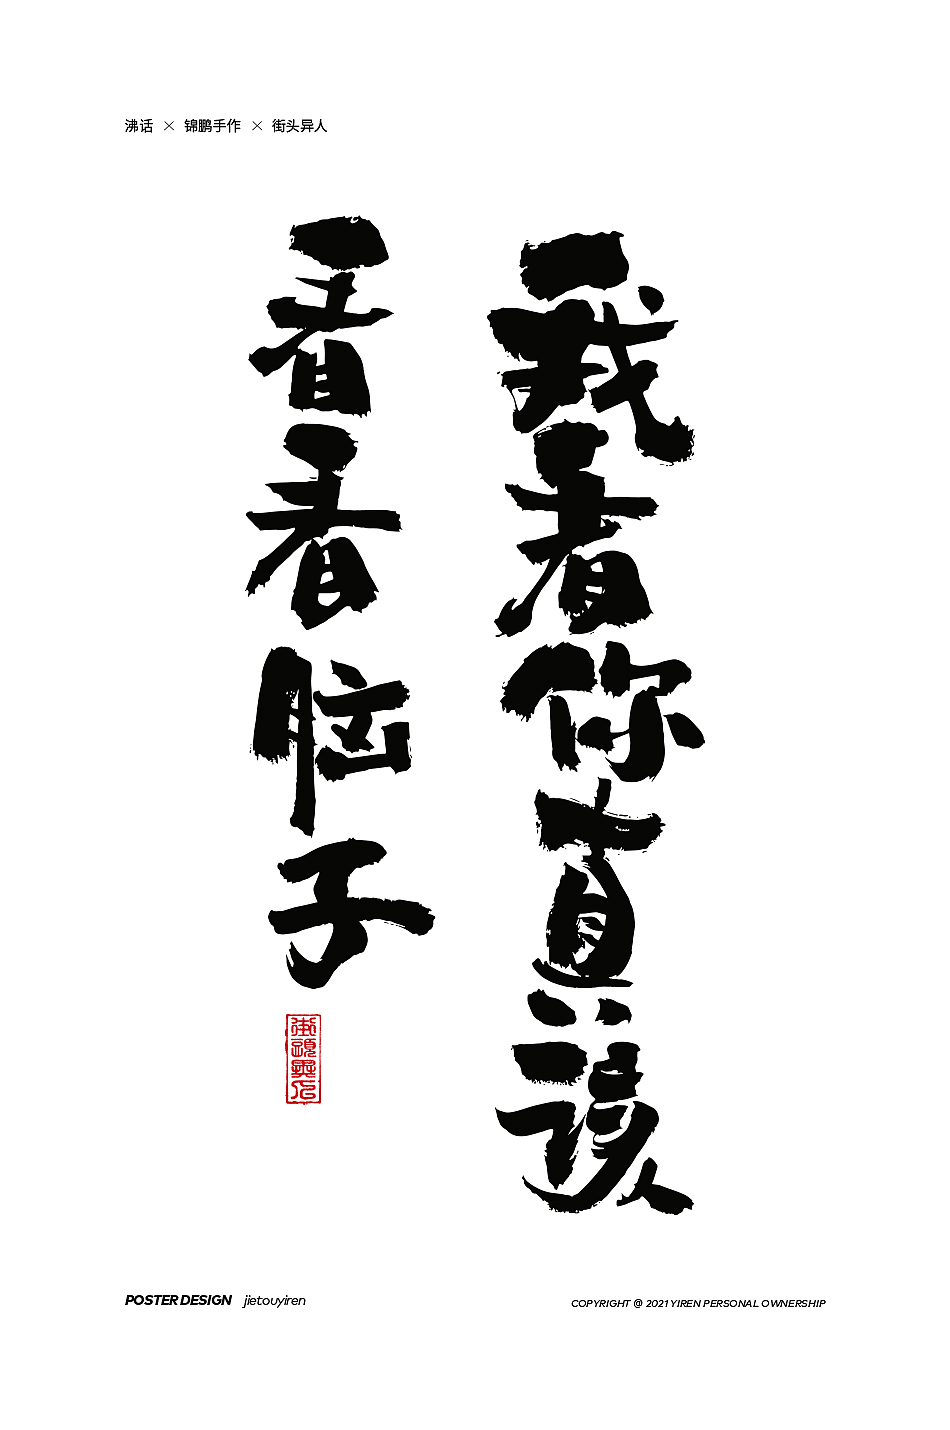 沸话 × 锦鹏手作 × 街头异人
我看你真该
看看脑子
街頭異人
POSTER DESIGN jietouyiren
COPYRIGHT @ 2021 YIREN PERSONAL OWNERSHIP